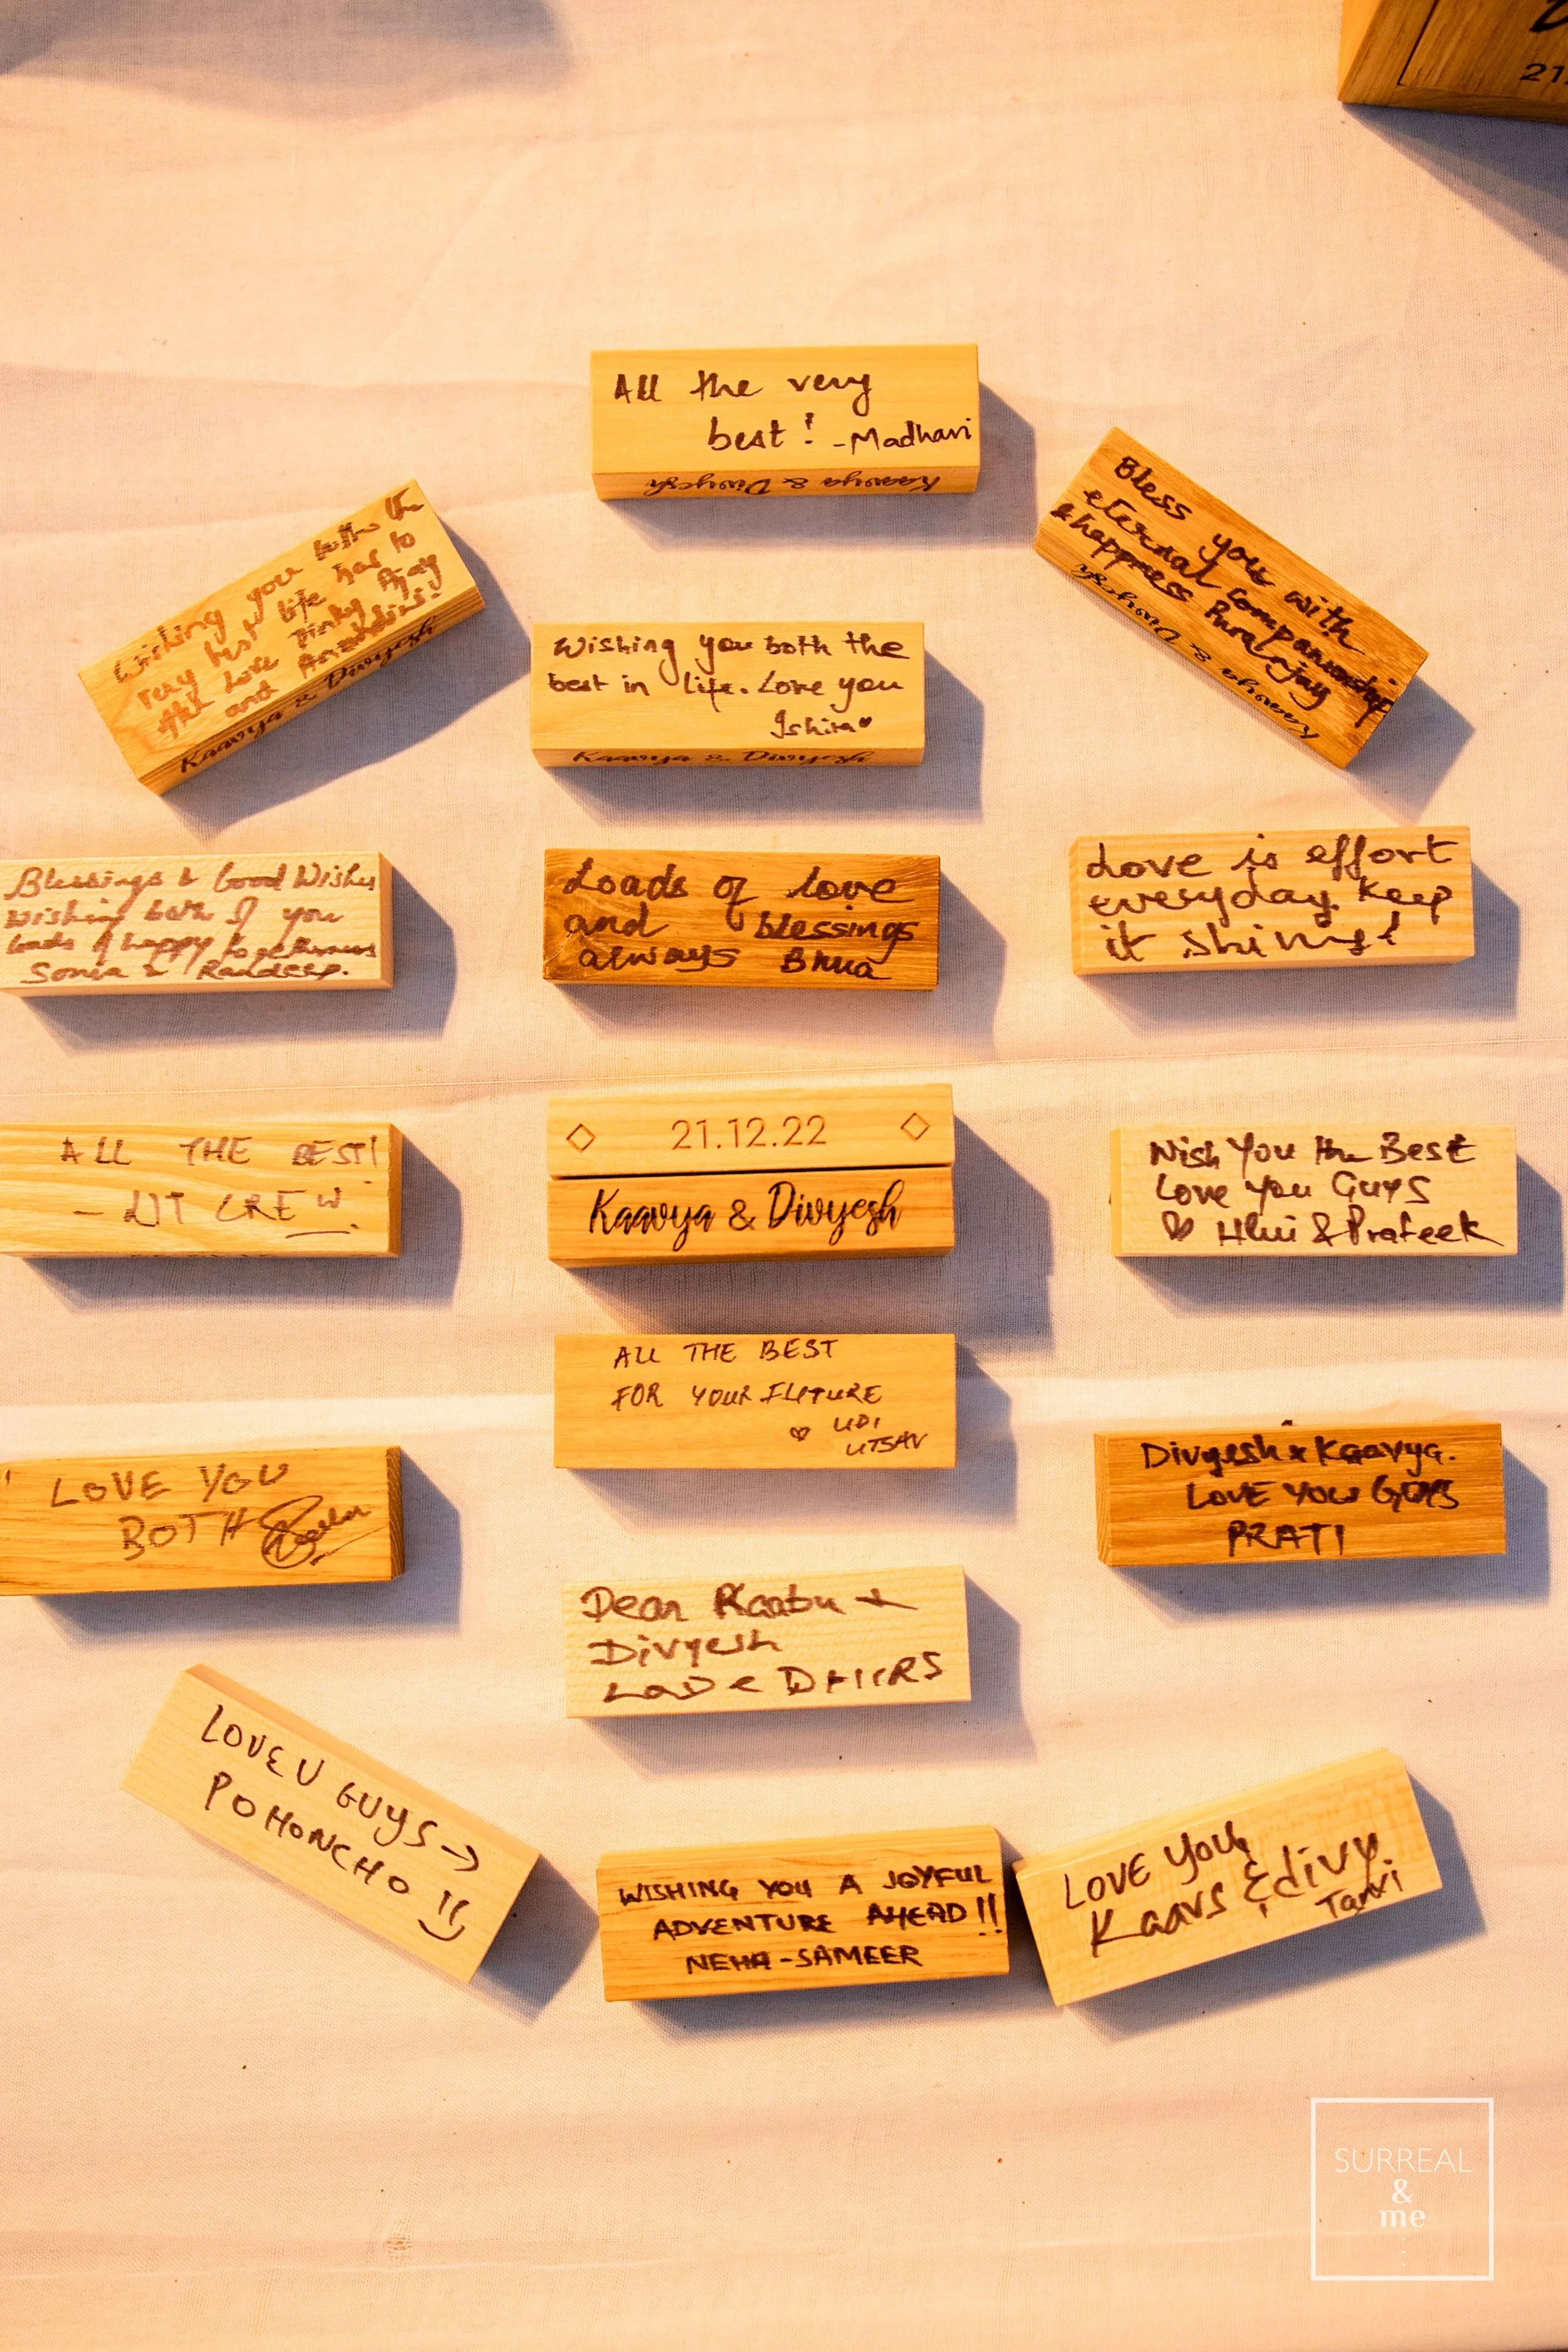 21.
All the very
best! -Madhavi
Kaavya & Divyesh
Wishing you both the
very best life has to
the Love Pinky Ajay
and
Kaavya & Divyesh
Bless you with
eternal companionship
& happiness
Kaavya & Divyesh
Wishing you both the
best in life. Love you
Ishira♥
Kaavya & Divyesh
Blessings & Good Wishes
Wishing both of you
loads of happy togetherness
Sonia & Randeep.
Loads of love
and blessings
always Bhua
Love is effort
everyday. Keep
it shining!
ALL THE BEST!
- LIT CREW.
◇ 21.12.22 ◇
Kaavya & Divyesh
Wish You the Best
Love you Guys
♡ & Prateek
ALL THE BEST
FOR YOUR FUTURE
♡ UDI
UTSAV
LOVE YOU
BOTH
Divyesh & Kaavya.
LOVE YOU GUYS
PRATI
Dear Kaabu +
Divyesh
Love
LOVE U GUYS →
POHONCHO !!
WISHING YOU A JOYFUL
ADVENTURE AHEAD!!
NEHA-SAMEER
LOVE YOU,
Kaavs & divy.
Tanvi
SURREAL
&
me